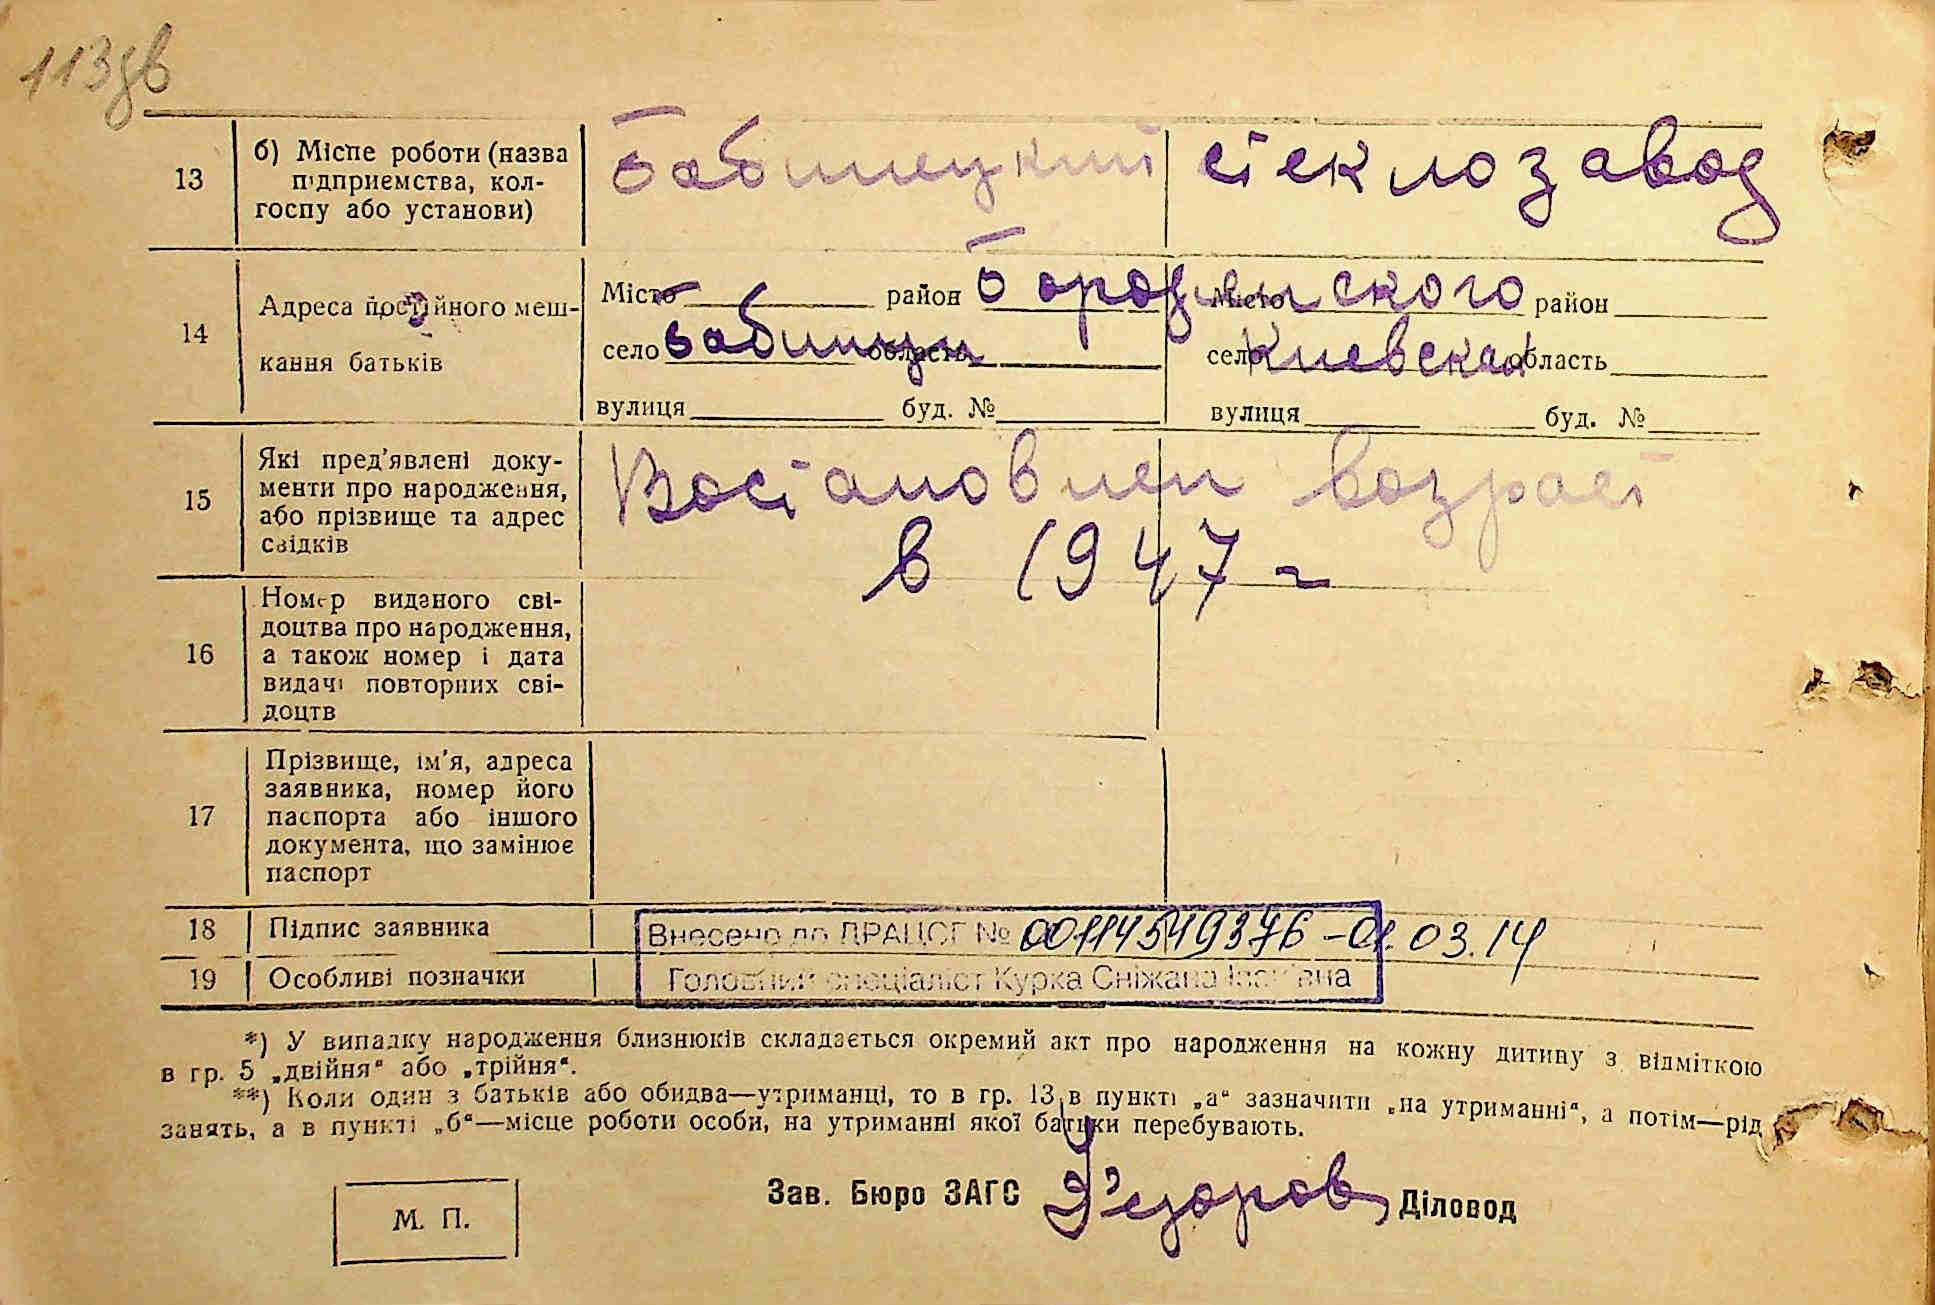 113зв
13
б) Місце роботи (назва
підприємства, кол-
госпу або установи)
Бабинецкий стеклозавод
14
Адреса постійного меш-
кання батьків
Місто район Бородянского Місто район
село Бабинцы область село Киевская область
вулиця буд. № вулиця буд. №
15
Які пред'явлені доку-
менти про народження,
або прізвище та адрес
свідків
Востановлен возраст
в 1947 г
16
Номер виданого сві-
доцтва про народження,
а також номер і дата
видачі повторних сві-
доцтв
17
Прізвище, ім'я, адреса
заявника, номер його
паспорта або іншого
документа, що замінює
паспорт
18 Підпис заявника
Внесено до ДРАЦСГ № 00114519376 - 01.03.14
19 Особливі позначки
Головний спеціаліст Курка Сніжана
*) У випадку народження близнюків складається окремий акт про народження на кожну дитину з відміткою
в гр. 5 „двійня“ або „трійня“.
**) Коли один з батьків або обидва—утриманці, то в гр. 13 в пункті „а“ зазначити „на утриманні“, а потім—рід
занять, а в пункті „б“—місце роботи особи, на утриманні якої батьки перебувають.
Зав. Бюро ЗАГС Діловод
М. П.